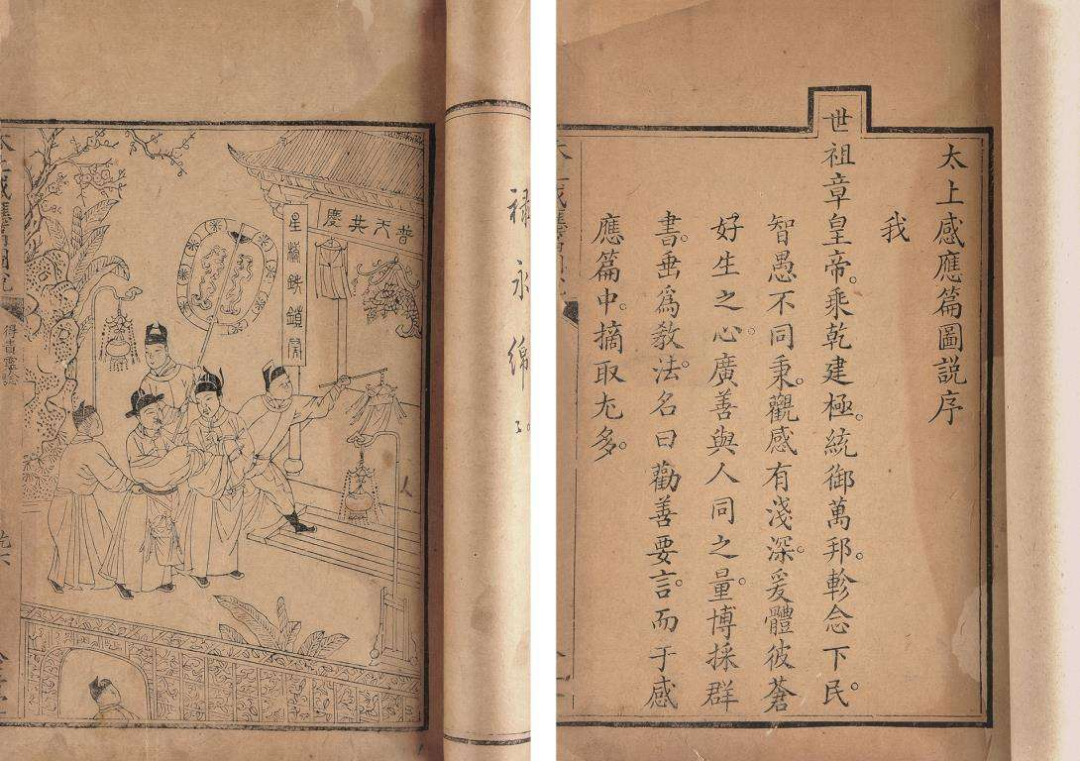 太上感應篇圖説序
我
世祖章皇帝。乘乾建極。統御萬邦。軫念下民。
智愚不同秉。觀感有淺深。爰體彼蒼
好生之心。廣善與人同之量。博採群
書。垂爲教法。名曰勸善要言。而于感
應篇中。摘取尤多。
祿永綿〻。
普天共慶
星橋鐵鎖開